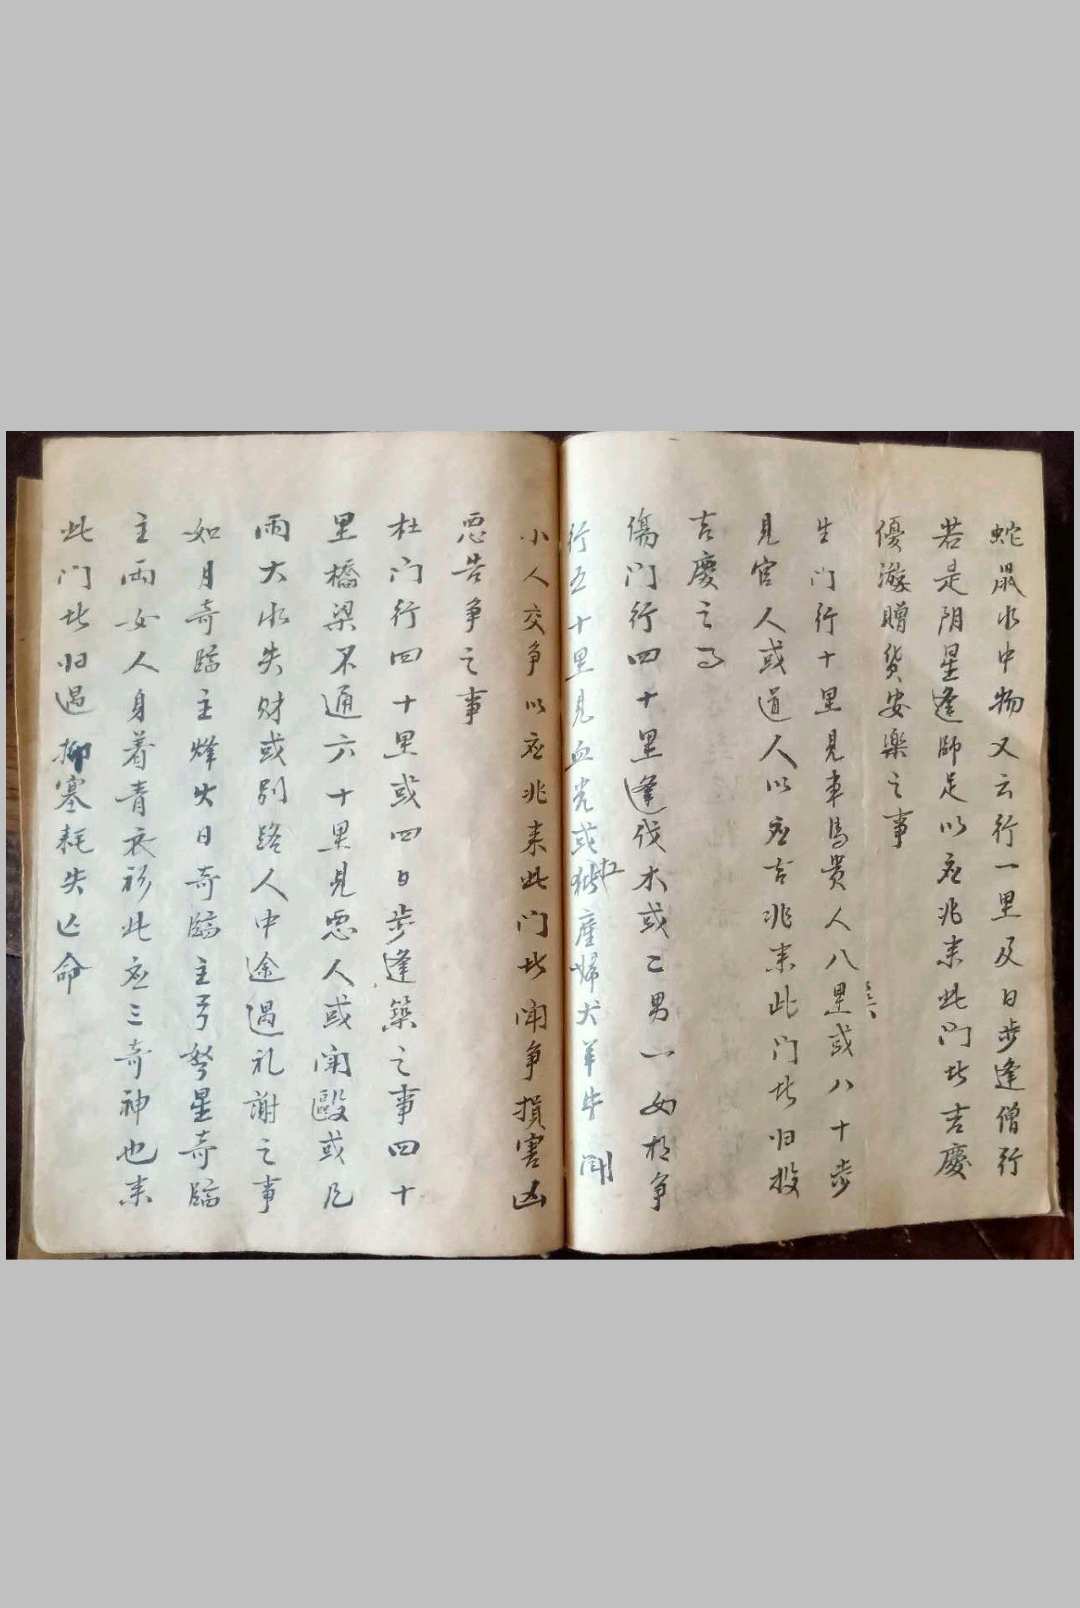 蛇鼠水中物又云行一里及日步逢僧行
若是阴星逢師足以应兆来此门此吉慶
優游贈货安樂之事
生门行十里見車馬贵人八里或八十步
見官人或道人以应吉兆来此门此归投
吉慶之
傷门行四十里逢伐木或二男一女相争
行五十里見血光或産婦犬羊牛 闻
小人交争以应兆来此门此闹争損害凶
恶告争之事
杜门行四十里或四日步逢築之事四十
里橋梁不通六十里見恶人或闹毆或凡
雨大水失财或别路人中途遇礼謝之事
如月奇臨主烽火日奇臨主弓弩星奇臨
主两女人身着青衣衫此应三奇神也来
此门此归遇抑塞耗失亡命